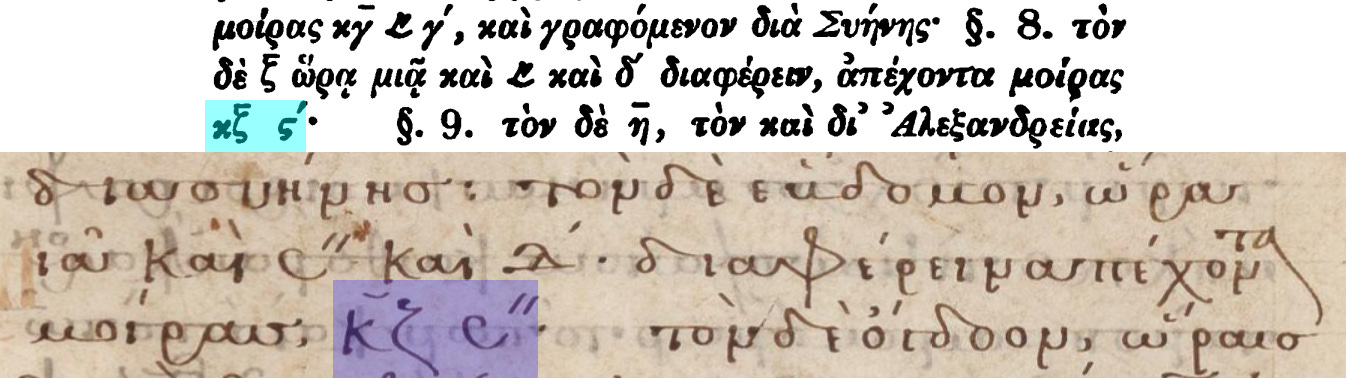 μοίρας κγ̄ 𐅵 γ΄, καὶ γραφόμενον διὰ Συήνης· §. 8. τὸν
δὲ ζ̄ ὥρᾳ μιᾷ καὶ 𐅵 καὶ δ΄ διαφέρειν, ἀπέχοντα μοίρας
κζ̄ ϛ΄· §. 9. τὸν δὲ η̄, τὸν καὶ δι᾽ Ἀλεξανδρείας,
δια συήνης: τὸν δὲ ἕβδομον, ὥρα
ιᾶ καὶ Ϲ″ καὶ δ΄· διαφέρειν ἀπέχοντα
μοίρας, κ̄ζ Ϲ″· τὸν δὲ ὄγδοον, ὥραις